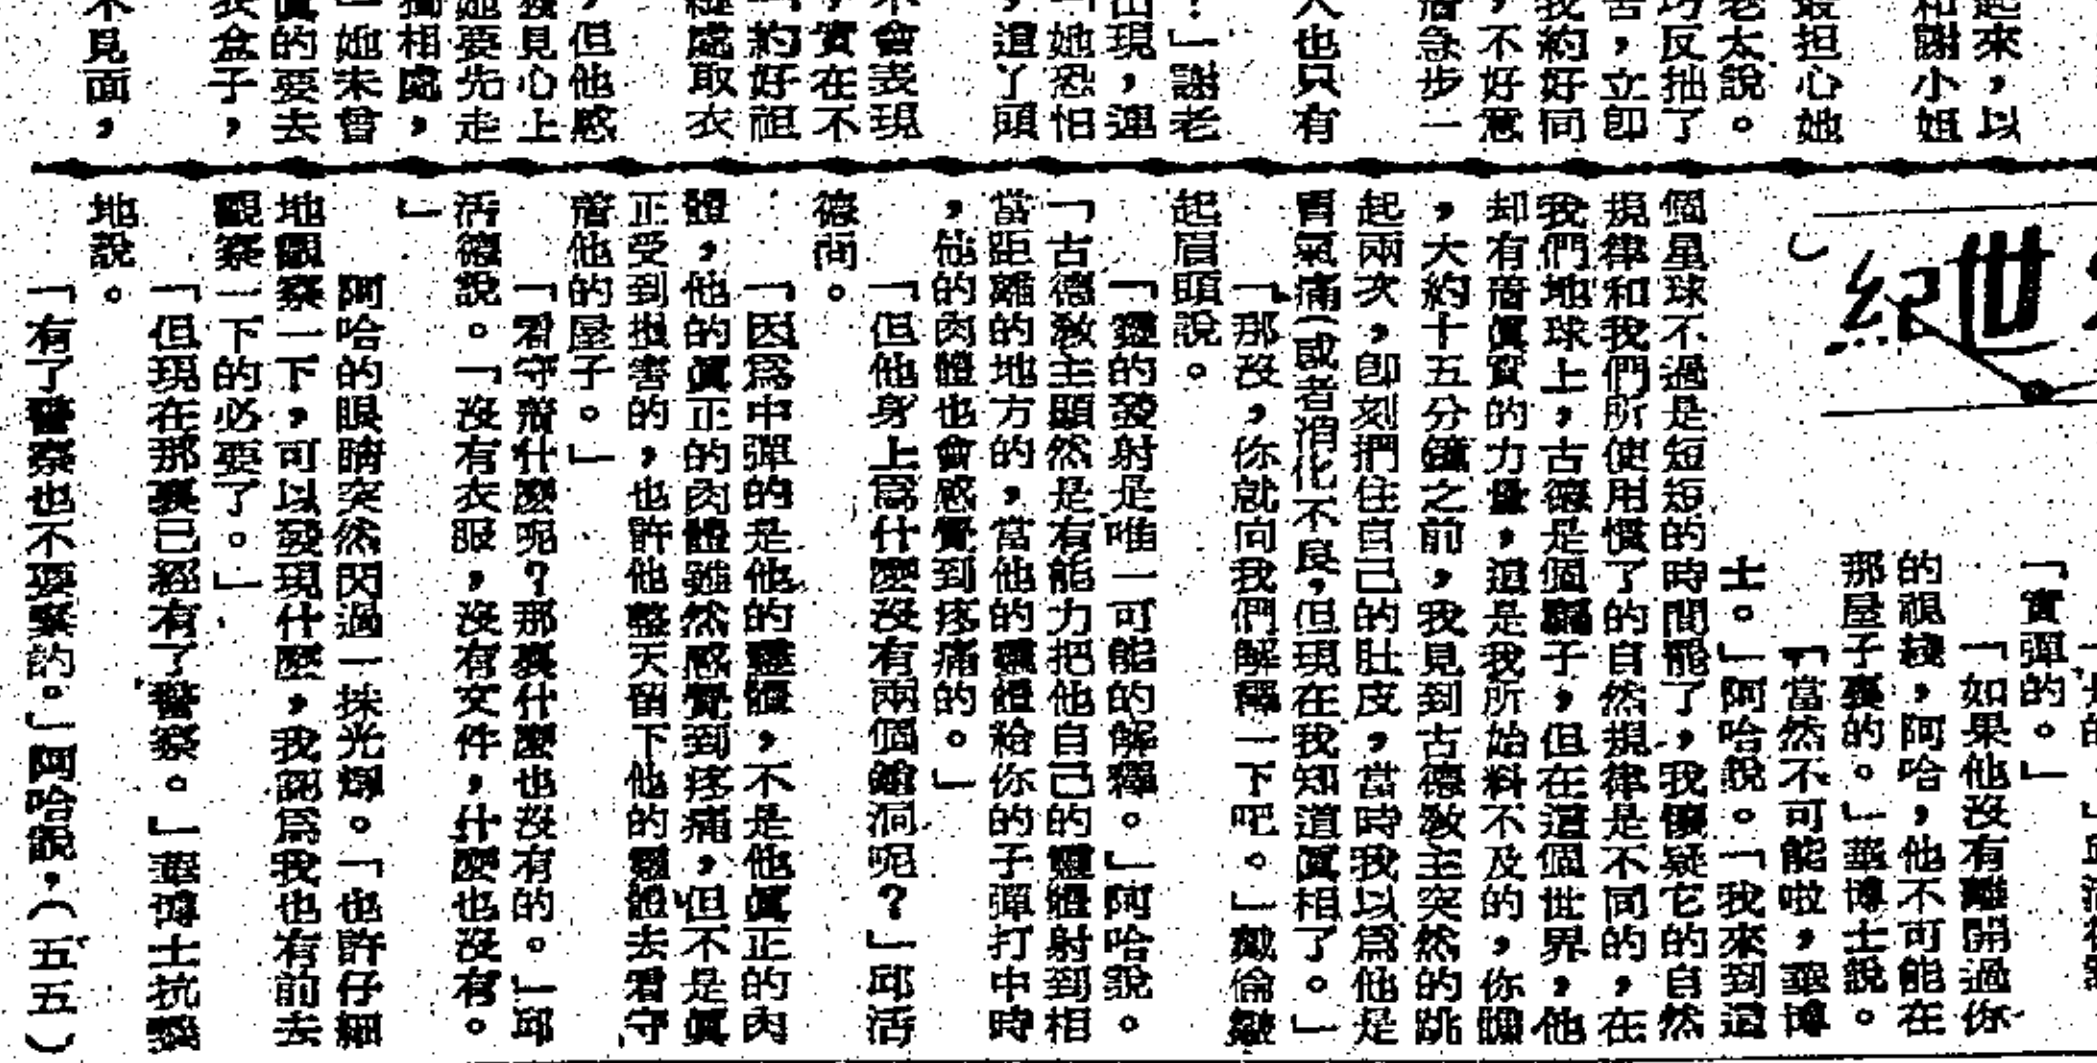 起來，以
和謝小姐
最担心她
老太說。
巧反抽了
苦，立即
我約好同
，不好意
着急步一
人也只有
？」謝老
出現，連
「她恐怕
，這丫頭
不會表現
，實在不
「約好祖
處取衣
，但他感
見心上
她要先走
獨相處，
」她未曾
真的要去
衣盒子，
不見面，
世紀
「實彈的。」
「如果他沒有離開過你
的視綫，阿哈，他不可能在
那屋子裏的。」華博士說。
「當然不可能啦，華博
士。」阿哈說。「我來到這
個星球不過是短短的時間罷了，我懷疑它的自然
規律和我們所使用慣了的自然規律是不同的，在
我們地球上，古德是個騙子，但在這個世界，他
却有着眞實的力量，這是我所始料不及的，你
，大約十五分鐘之前，我見到古德敎主突然的跳
起兩次，卽刻捫住自己的肚皮，當時我以爲他是
胃氣痛（或者消化不良，但現在我知道眞相了。」
「那沒，你就向我們解釋一下吧。」戴倫皺
起眉頭說。
「靈的發射是唯一可能的解釋。」阿哈說。
「古德敎主顯然是有能力把他自己的靈體射到相
當距離的地方的，當他的靈體給你的子彈打中時
，他的肉體也會感覺到疼痛的。」
「但他身上爲什麼沒有兩個鎗洞呢？」邱活
德問。
「因爲中彈的是他的靈體，不是他眞正的肉
體，他的眞正的肉體雖然感覺到疼痛，但不是眞
正受到損害的，也許他整天留下他的靈體去看守
着他的屋子。」
「看守着什麼呢？那裏什麼也沒有的。」邱
活德說。「沒有衣服，沒有文件，什麼也沒有。
」
阿哈的眼睛突然閃過一抹光輝。「也許仔細
地觀察一下，可以發現什麼，我認爲我也有前去
觀察一下的必要了。」
「但現在那裏已經有了警察。」華博士抗議
地說。
「有了警察也不要緊的。」阿哈說，（五五）